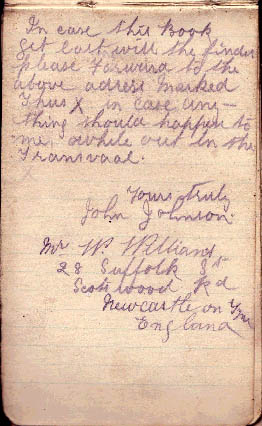 In case this Book
get lost will the finder
please Forward to the
above adress marked
Thus X in case any-
thing should happen to
me, awhile out in the
Transvaal.
Yours truly
John Johnson.
Mr W. Williams
28 Suffolk St
Scotswood Rd
Newcastle on Tyne
England